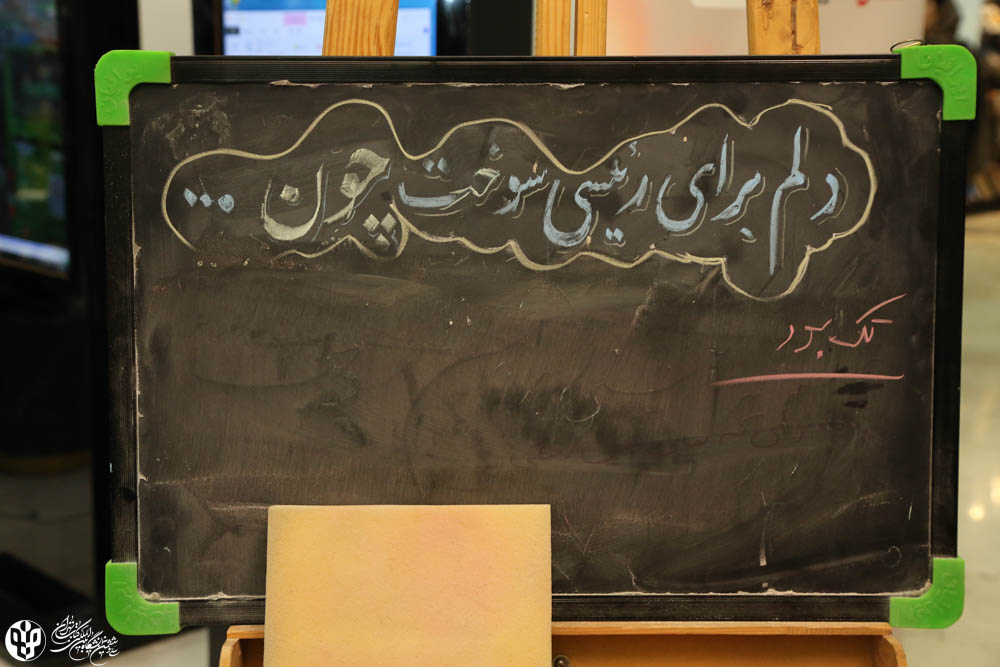 دلم برای رئیسی سوخت چون ...
تک بود